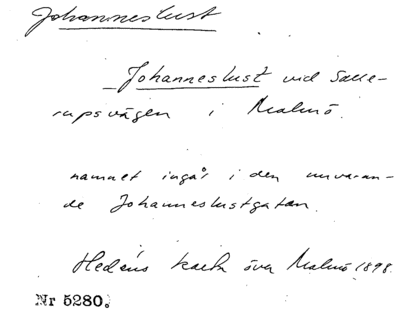 Johanneslust
Johanneslust vid Salle-
rupsvägen i Malmö.
namnet ingår i den nuvaran-
de Johanneslustgatan.
Hedéns karta över Malmö 1898.
Nr 5280.